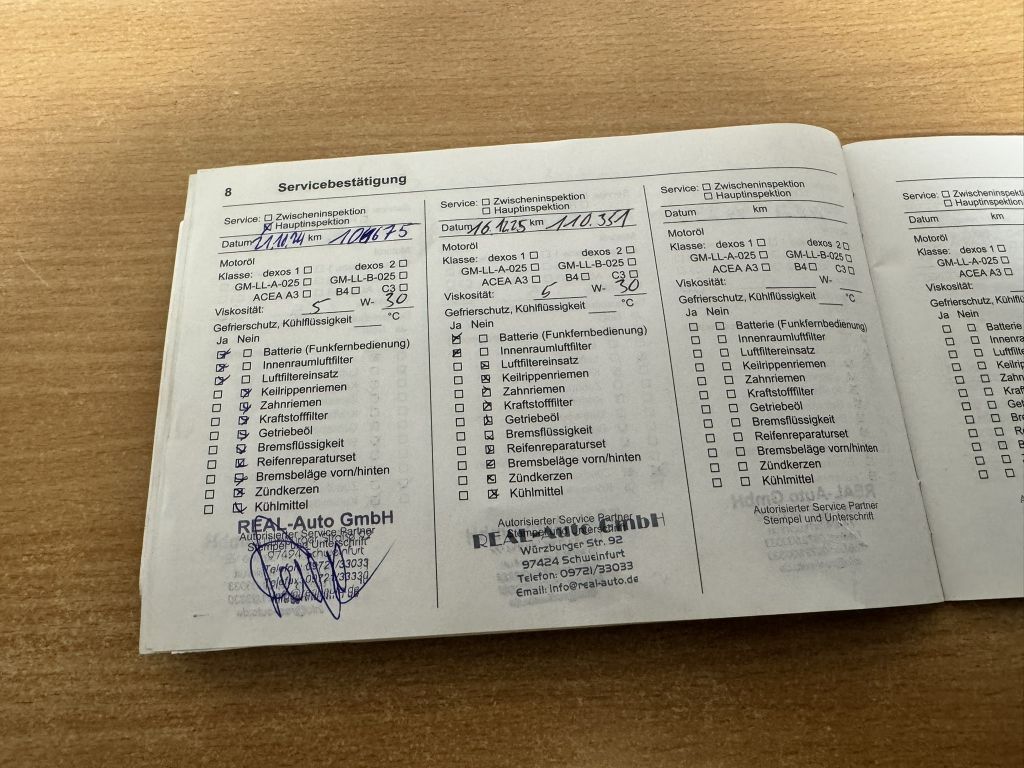 8 Servicebestätigung
Service: Zwischeninspektion
Hauptinspektion
Datum 21.10.24 km
Motoröl
Klasse: dexos 1 dexos 2
GM-LL-A-025 GM-LL-B-025
ACEA A3 B4 C3
Viskosität: 5 W- 30
Gefrierschutz, Kühlflüssigkeit °C
Ja Nein
Batterie (Funkfernbedienung)
Innenraumluftfilter
Luftfiltereinsatz
Keilrippenriemen
Zahnriemen
Kraftstofffilter
Getriebeöl
Bremsflüssigkeit
Reifenreparaturset
Bremsbeläge vorn/hinten
Zündkerzen
Kühlmittel
REAL-Auto GmbH
Autorisierter Service Partner
Stempel und Unterschrift
97424 Schweinfurt
Telefon: 09721/33033
Telefax: 09721/33330
Service: Zwischeninspektion
Hauptinspektion
Datum 16.12.25 km 110.351
Motoröl
Klasse: dexos 1 dexos 2
GM-LL-A-025 GM-LL-B-025
ACEA A3 B4 C3
Viskosität: 5 W- 30
Gefrierschutz, Kühlflüssigkeit °C
Ja Nein
Batterie (Funkfernbedienung)
Innenraumluftfilter
Luftfiltereinsatz
Keilrippenriemen
Zahnriemen
Kraftstofffilter
Getriebeöl
Bremsflüssigkeit
Reifenreparaturset
Bremsbeläge vorn/hinten
Zündkerzen
Kühlmittel
Autorisierter Service Partner
Stempel und Unterschrift
REAL-Auto GmbH
Würzburger Str. 92
97424 Schweinfurt
Telefon: 09721/33033
Email: info@real-auto.de
Service: Zwischeninspektion
Hauptinspektion
Datum km
Motoröl
Klasse: dexos 1 dexos 2
GM-LL-A-025 GM-LL-B-025
ACEA A3 B4 C3
Viskosität: W-
Gefrierschutz, Kühlflüssigkeit °C
Ja Nein
Batterie (Funkfernbedienung)
Innenraumluftfilter
Luftfiltereinsatz
Keilrippenriemen
Zahnriemen
Kraftstofffilter
Getriebeöl
Bremsflüssigkeit
Reifenreparaturset
Bremsbeläge vorn/hinten
Zündkerzen
Kühlmittel
Autorisierter Service Partner
Stempel und Unterschrift
Service: Zwischeninspekti
Hauptinspektion
Datum km
Motoröl
Klasse: dexos 1
GM-LL-A-025
ACEA A3
Viskosität:
Gefrierschutz, Kühlflüssig
Ja Nein
Batterie
Innenra
Luftfilte
Keilrip
Zahnr
Kraft
Get
Br
R